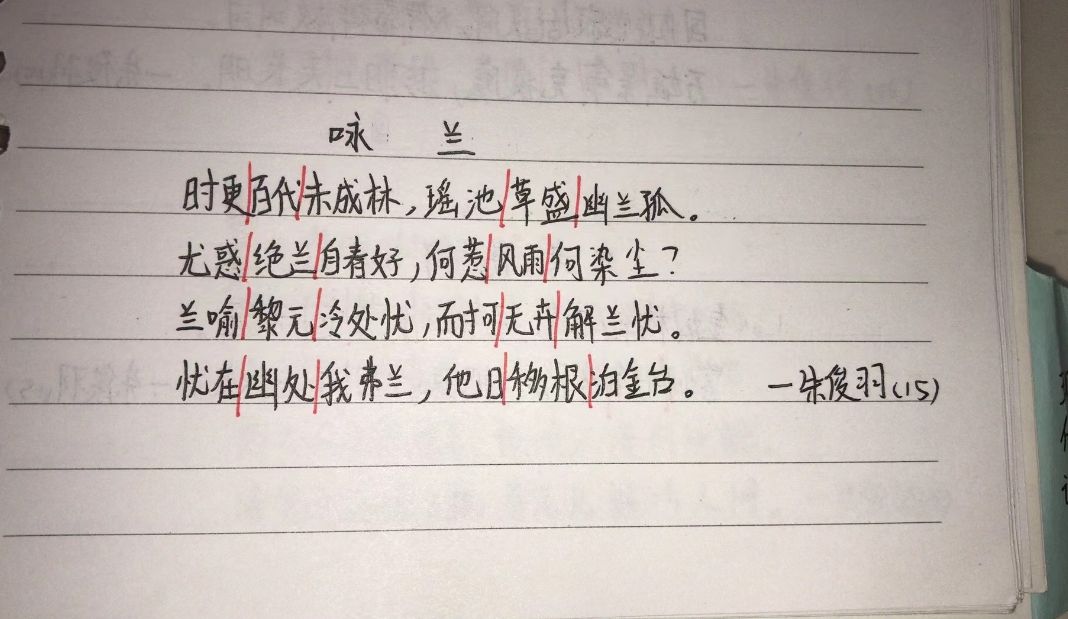 咏 兰
时更百代未成林，瑶池草盛幽兰孤。
尤惑绝兰自春好，何惹风雨何染尘？
兰喻黎元冷处忧，而打可无卉解兰忧。
忧在幽处我弗兰，他日移根泊金台。 —朱俊羽(15)